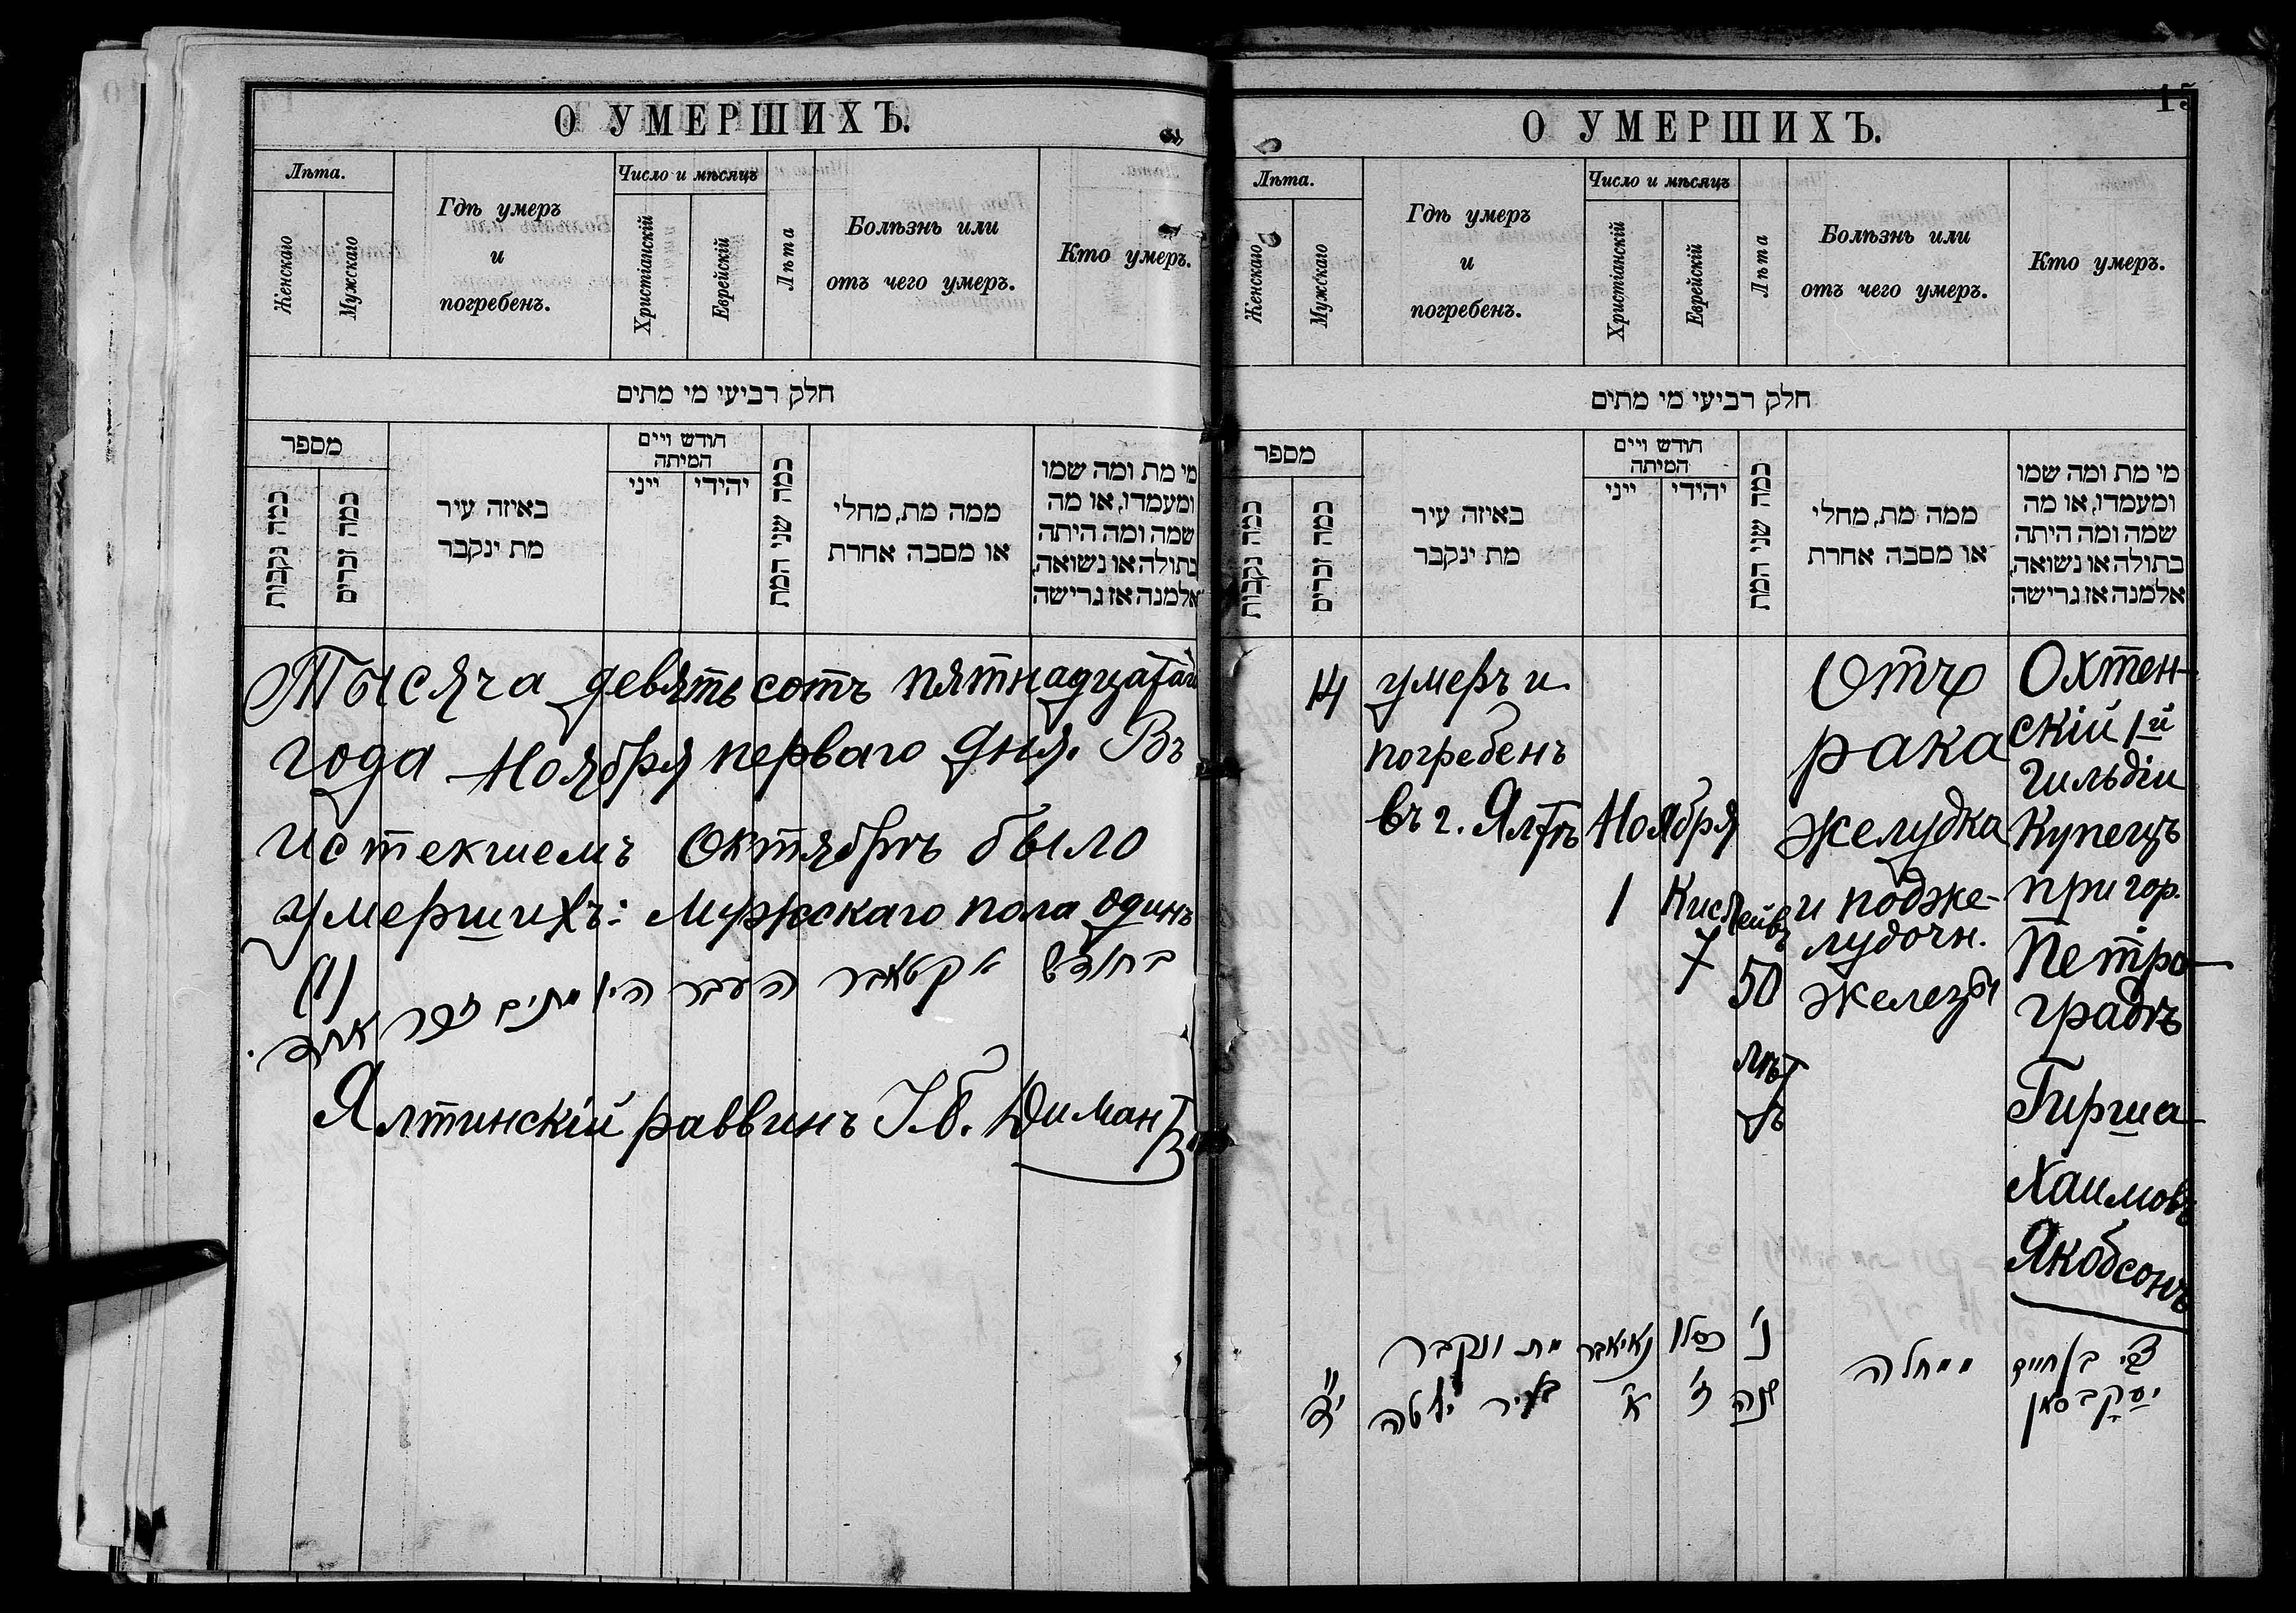 О УМЕРШИХЪ.
Лѣта.
Женскаго
Мужскаго
Гдѣ умеръ
и
погребенъ.
Число и мѣсяцъ
Христіанскій
Еврейскій
Лѣта
Болѣзнь или
отъ чего умеръ.
Кто умеръ.
חלק רביעי מי מתים
מספר
כמה נקבות
כמה זכרים
באיזה עיר
מת ינקבר
חודש ויים
המיתה
ייני
יהידי
כמה שני המת
ממה מת, מחלי
או מסבה אחרת
מי מת ומה שמו
ומעמדו, או מה
שמה ומה היתה
בתולה או נשואה,
אלמנה אז גרישה
Тысяча девятьсотъ пятнадцатаго
года Ноября перваго дня. Въ
истекшемъ Октябрѣ было
умершихъ: мужскаго пола одинъ
(1)
בחודש אקטאבר העבר היו מתים זכר אחד.
Ялтинскій раввинъ І. б. Димантъ
15
О УМЕРШИХЪ.
Лѣта.
Женскаго
Мужскаго
Гдѣ умеръ
и
погребенъ.
Число и мѣсяцъ
Христіанскій
Еврейскій
Лѣта
Болѣзнь или
отъ чего умеръ.
Кто умеръ.
חלק רביעי מי מתים
מספר
כמה נקבות
כמה זכרים
באיזה עיר
מת ינקבר
חודש ויים
המיתה
ייני
יהידי
כמה שני המת
ממה מת, מחלי
או מסבה אחרת
מי מת ומה שמו
ומעמדו, או מה
שמה ומה היתה
בתולה או נשואה,
אלמנה אז גרישה
14
умеръ и
погребенъ
въ г. Ялтѣ
Ноября
1
Кислейвъ
7
50
лѣт
ъ
Отъ
рака
желудка
и подже-
лудочн.
железы
Охтен-
скій 1й
гильдіи
Купецъ
при гор.
Петро-
градѣ
Гирша
Хаимовъ
Якобсонъ
י"ד
מת ונקבר
בעיר יאלטה
נאיאבר
א'
כסלו
ז'
נ'
שנה
ממחלה
צבי בן חיים
יעקבסאן